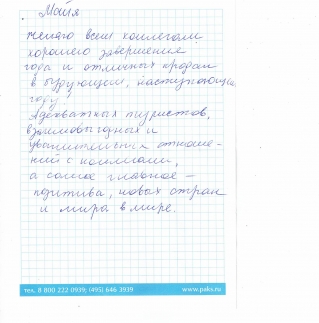 Майя
желаю всем коллегам
хорошего завершения
года и отличных продаж
в будующем, наступающем
году
Адекватных туристов,
взаимовыгодных и
уважительных отноше-
ний с коллегами,
а самое главное –
позитива, новых стран
и мира в мире.
тел. 8 800 222 0939; (495) 646 3939
www.paks.ru